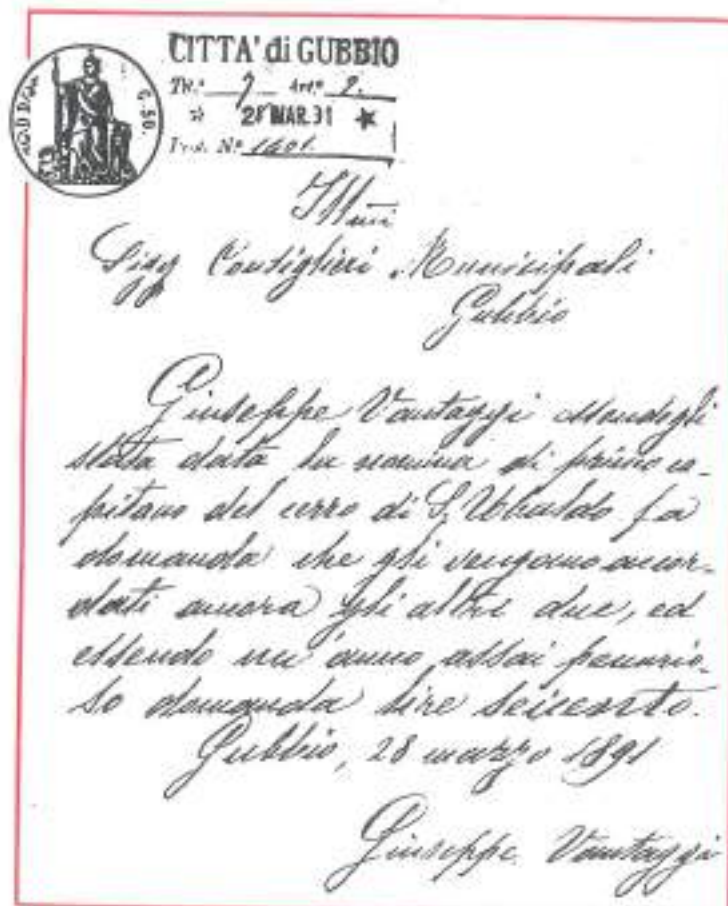 CITTA' di GUBBIO
Tit.° 7 Art.° 2.
28 MAR.91
Prot. N° 1601.
G. 50.
Illmi
Sigg Consiglieri Municipali
Gubbio
Giuseppe Vantaggi essendogli
stata data la nomina di primo ca-
pitano del cerro di S. Ubaldo fa
domanda che gli vengano accor-
dati ancora gli altri due, ed
essendo un'anno assai penurio-
so domanda lire seicento.
Gubbio, 28 marzo 1891
Giuseppe Vantaggi